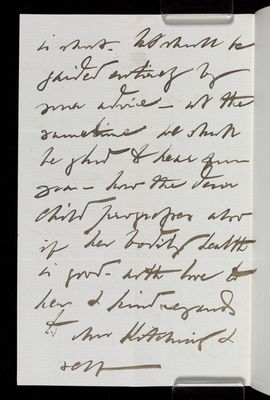 is short. We shall be
guided entirely by
your advice - at the
same time we shall
be glad to hear from
you - how the dear
child progresses also
if her bodily health
is good. with love to
her & kind regards
to Mrs Hitching &
self